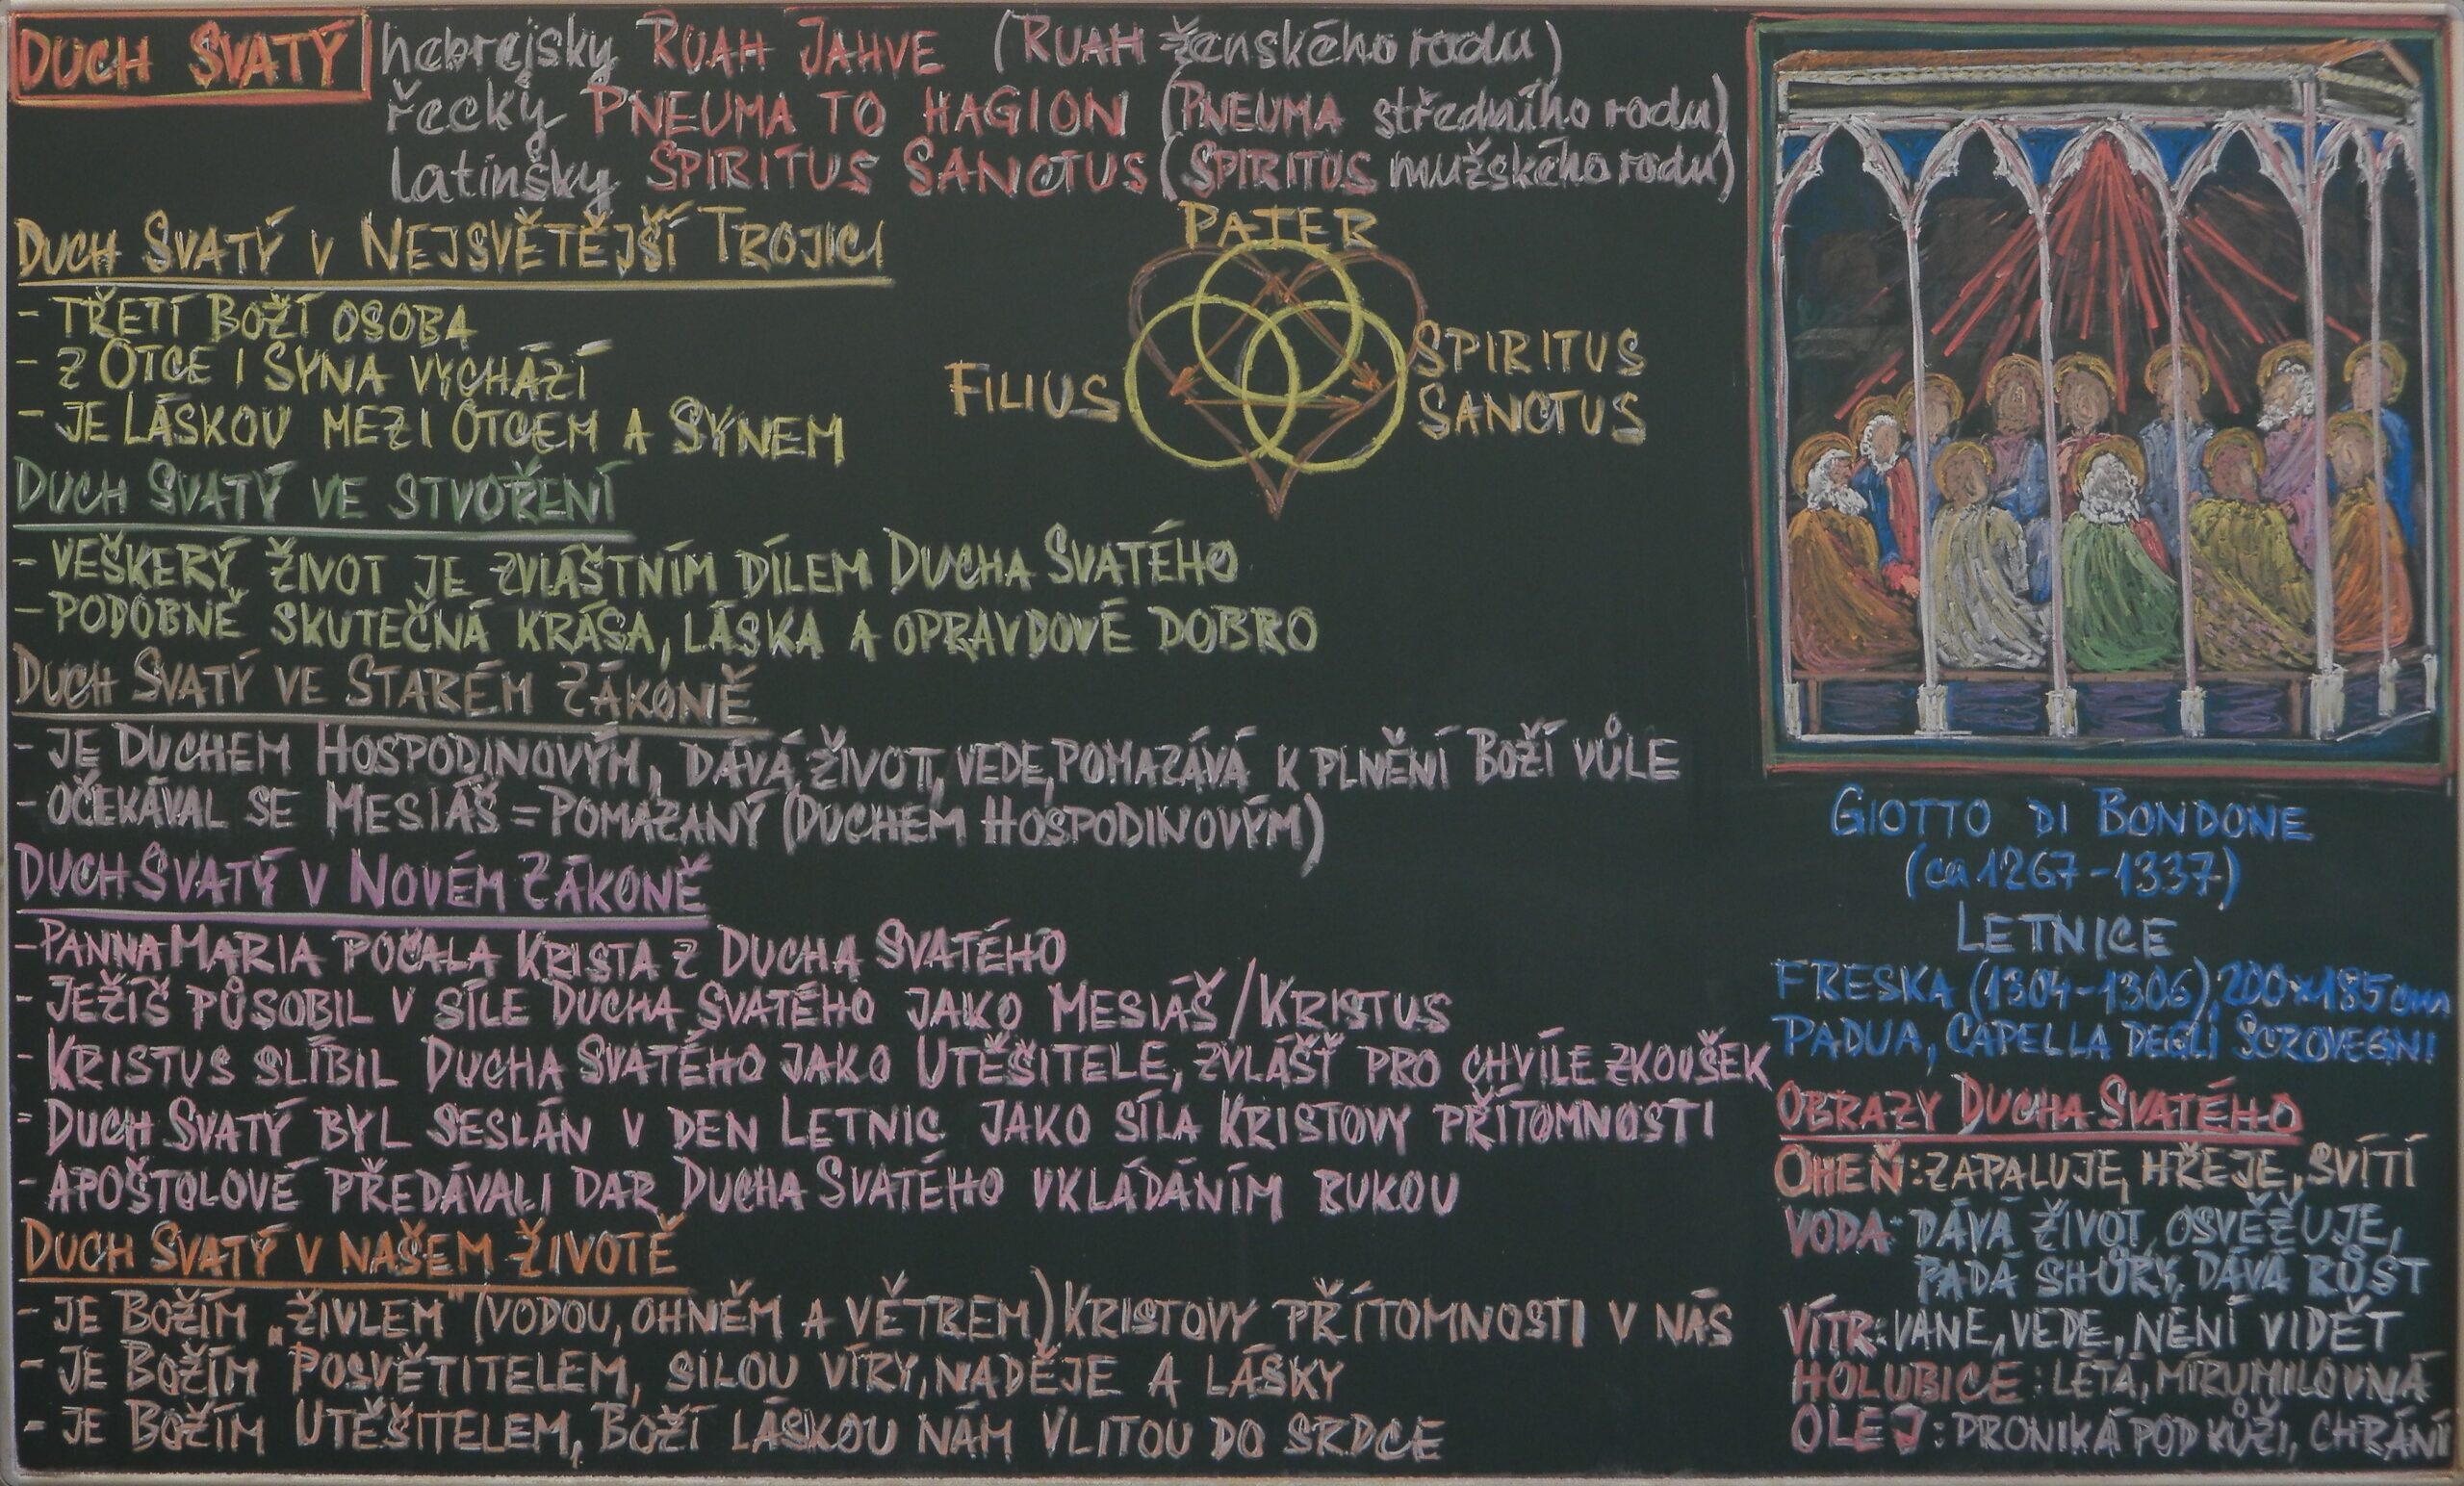 DUCH SVATÝ hebrejsky RUAH JAHVE (RUAH ženského rodu)
řecky PNEUMA TO HAGION (PNEUMA středního rodu)
latinsky SPIRITUS SANCTUS (SPIRITUS mužského rodu)
DUCH SVATÝ V NEJSVĚTĚJŠÍ TROJICI
- TŘETÍ BOŽÍ OSOBA
- Z OTCE I SYNA VYCHÁZÍ
- JE LÁSKOU MEZI OTCEM A SYNEM
PATER
FILIUS
SPIRITUS
SANCTUS
DUCH SVATÝ VE STVOŘENÍ
- VEŠKERÝ ŽIVOT JE ZVLÁŠTNÍM DÍLEM DUCHA SVATÉHO
- PODOBNĚ SKUTEČNÁ KRÁSA, LÁSKA A OPRAVDOVÉ DOBRO
DUCH SVATÝ VE STARÉM ZÁKONĚ
- JE DUCHEM HOSPODINOVÝM, DÁVÁ ŽIVOT, VEDE, POMAZÁVÁ K PLNĚNÍ BOŽÍ VŮLE
- OČEKÁVAL SE MESIÁŠ = POMAZANÝ (DUCHEM HOSPODINOVÝM)
DUCH SVATÝ V NOVÉM ZÁKONĚ
- PANNA MARIA POČALA KRISTA Z DUCHA SVATÉHO
- JEŽÍŠ PŮSOBIL V SÍLE DUCHA SVATÉHO JAKO MESIÁŠ/KRISTUS
- KRISTUS SLÍBIL DUCHA SVATÉHO JAKO UTĚŠITELE, ZVLÁŠŤ PRO CHVÍLE ZKOUŠEK
- DUCH SVATÝ BYL SESLÁN V DEN LETNIC JAKO SÍLA KRISTOVY PŘÍTOMNOSTI
- APOŠTOLOVÉ PŘEDÁVALI DAR DUCHA SVATÉHO VKLÁDÁNÍM RUKOU
DUCH SVATÝ V NAŠEM ŽIVOTĚ
- JE BOŽÍM „ŽIVLEM" (VODOU, OHNĚM A VĚTREM) KRISTOVY PŘÍTOMNOSTI V NÁS
- JE BOŽÍM POSVĚTITELEM, SILOU VÍRY, NADĚJE A LÁSKY
- JE BOŽÍM UTĚŠITELEM, BOŽÍ LÁSKOU NÁM VLITOU DO SRDCE
GIOTTO DI BONDONE
(ca 1267-1337)
LETNICE
FRESKA (1304-1306), 200x185 cm
PADUA, CAPELLA DEGLI SCROVEGNI
OBRAZY DUCHA SVATÉHO
OHEŇ: ZAPALUJE, HŘEJE, SVÍTÍ
VODA: DÁVÁ ŽIVOT, OSVĚŽUJE,
PADÁ SHŮRY, DÁVÁ RŮST
VÍTR: VANE, VEDE, NENÍ VIDĚT
HOLUBICE: LÉTÁ, MÍRUMILOVNÁ
OLEJ: PRONIKÁ POD KŮŽI, CHRÁNÍ